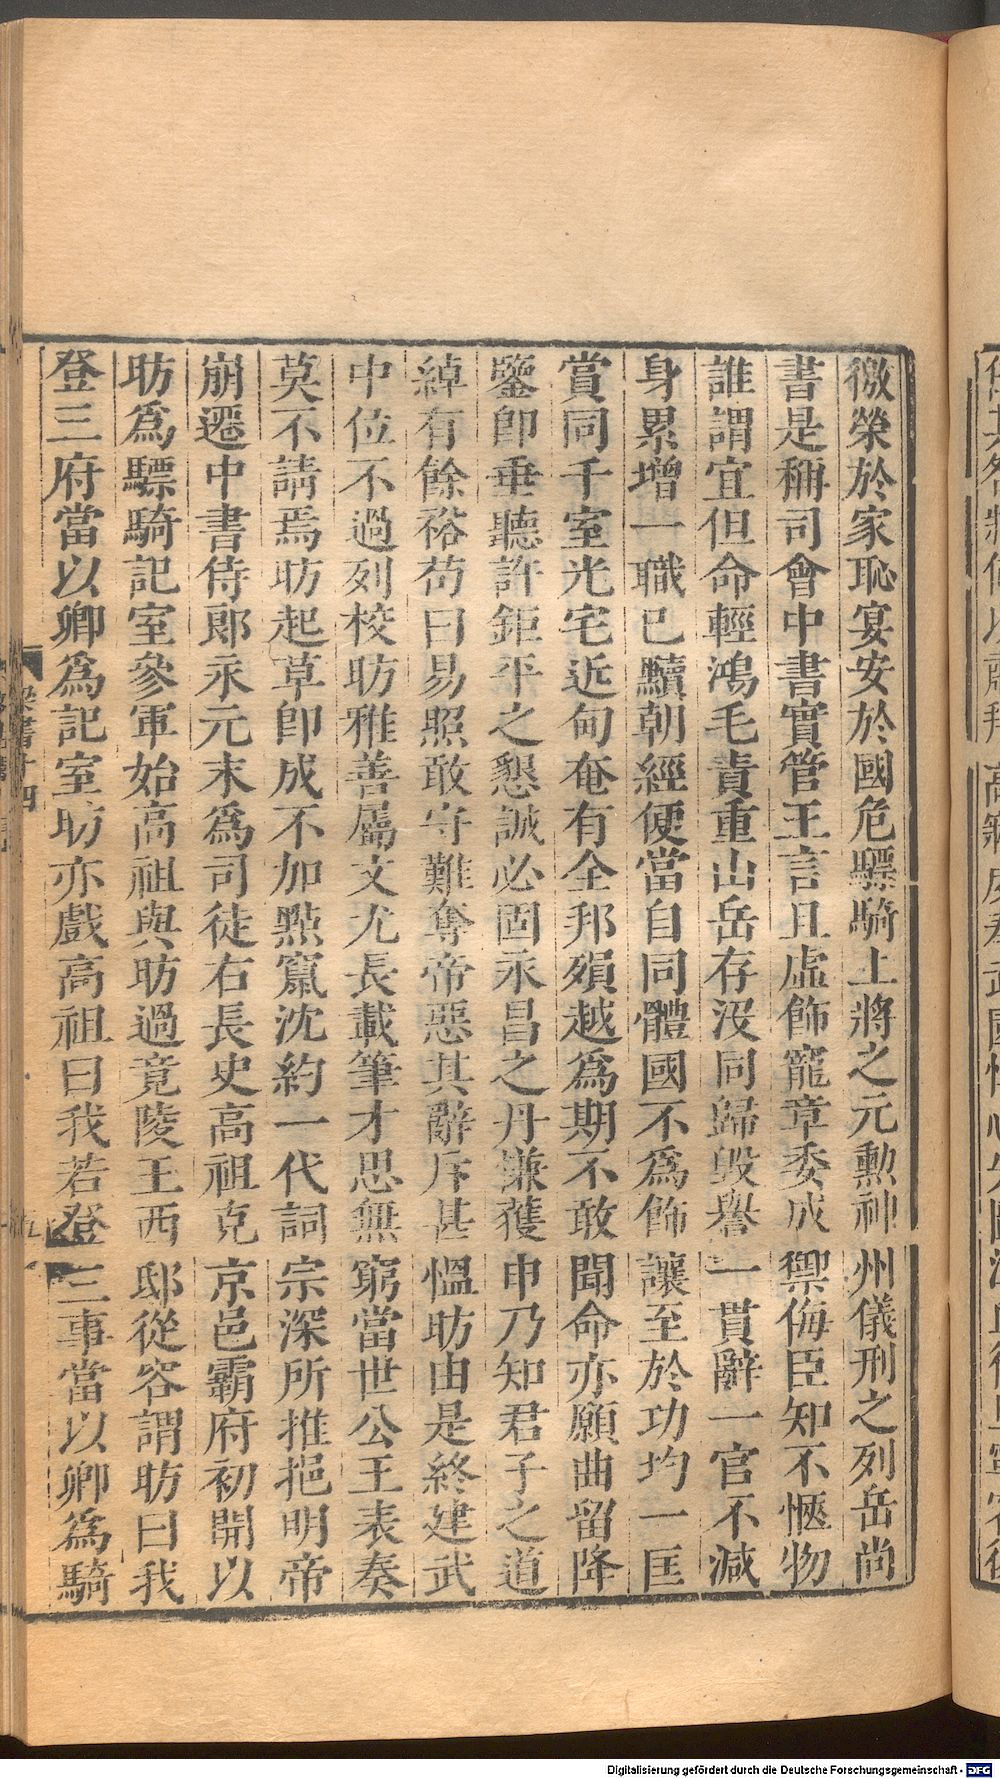 徼榮於家恥宴安於國危驃騎上將之元勳神州儀刑之列岳尚
書是稱司會中書實管王言且虛飾寵章委成禦侮臣知不愜物
誰謂宜但命輕鴻毛責重山岳存沒同歸毀譽一貫辭一官不減
身累增一職已黷朝經便當自同體國不為飾讓至於功均一匡
賞同千室光宅近甸奄有全邦殞越為期不敢聞命亦願曲留降
鑒即垂聽許鉅平之懇誠必固永昌之丹慊獲申乃知君子之道
綽有餘裕苟曰易照敢守難奪帝惡其辭斥甚慍昉由是終建武
中位不過列校昉雅善屬文尤長載筆才思無窮當世公王表奏
莫不請焉昉起草即成不加點竄沈約一代詞宗深所推挹明帝
崩遷中書侍郎永元末為司徒右長史高祖克京邑霸府初開以
昉為驃騎記室參軍始高祖與昉過竟陵王西邸從容謂昉曰我
登三府當以卿為記室昉亦戲高祖曰我若登三事當以卿為騎
梁書十四
Digitalisierung gefördert durch die Deutsche Forschungsgemeinschaft - DFG